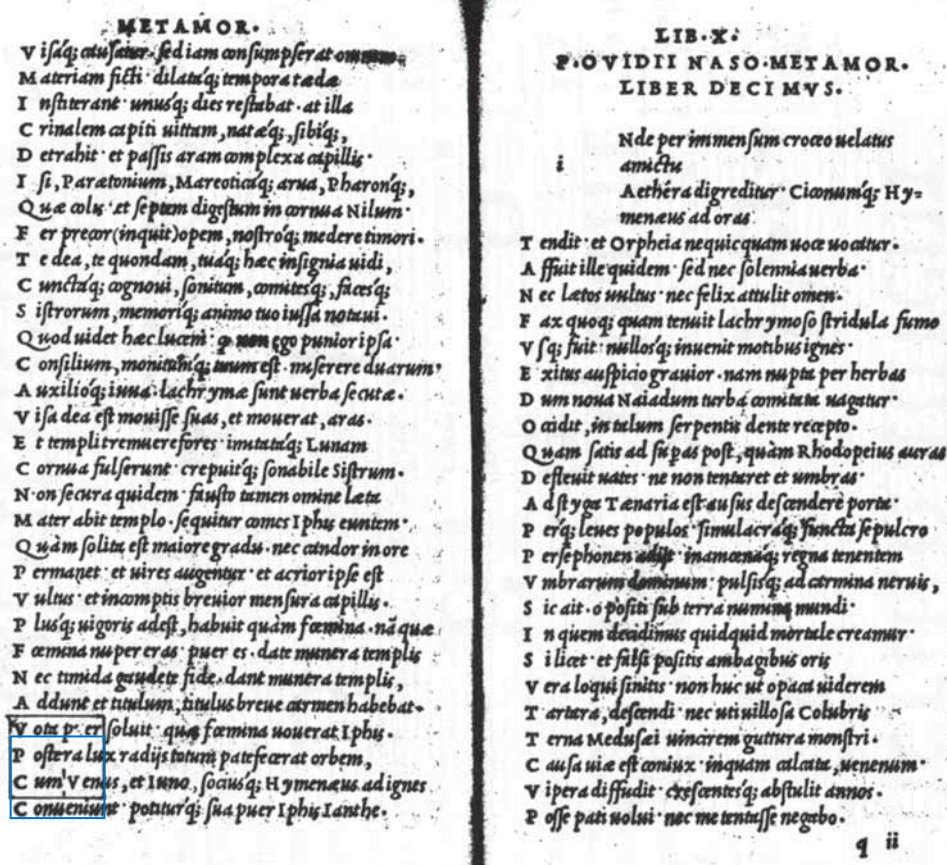 METAMOR.
V isáq; causatur. sed iam consumpserat
M ateriam ficti. dilatáq; tempora tædæ
I nstiterant. unusq; dies restabat. at illa
C rinalem capiti uittam, natæq́;, sibiq́;,
D etrahit. et passis aram complexa capillis.
I si, Parætonium, Mareoticáq; arua, Pharonq́;,
Quæ colis. et septem digestum in cornua Nilum.
F er precor(inquit)opem, nostroq́; medere timori.
T e dea, te quondam, tuaq́; hæc insignia uidi,
C unctáq; cognoui, sonitum, comitesq́;, facesq́;
S istrorum, memoriq́; animo tuo iussa notaui.
Quod uidet hæc lucem. non ego punior ipsa.
C onsilium, monitumq́; tuum est. miserere duarum.
A uxilioq́; iuua. lachrymæ sunt uerba secutæ.
V isa dea est mouisse suas, et mouerat, aras.
E t templi tremuere fores. imitatáq; Lunam
C ornua fulserunt. crepuitq́; sonabile Sistrum.
N on secura quidem. fausto tamen omine læta
M ater abit templo. sequitur comes Iphis euntem.
Quàm solita est maiore gradu. nec candor in ore
P ermanet. et uires augentur. et acrior ipse est
V ultus. et incomptis breuior mensura capillis.
P lusq́; uigoris adest, habuit quàm fœmina. nã quæ
F œmina nuper eras. puer es. date munera templis
N ec timida gaudete fide. dant munera templis,
A ddunt et titulum, titulus breue carmen habebat.
V ota p er soluit. quæ fœmina uouerat Iphis.
P ostera lux radijs totum patefecerat orbem,
C um Venus, et Iuno, sociusq́; Hymenæus ad ignes
C onueniunt. potiturq́; sua puer Iphis Ianthe.
LIB.X.
P.OVIDII NASO.METAMOR.
LIBER DECIMVS.
i Nde per immensum croceo uelatus
amictu
Aethéra digreditur. Ciconumq́; Hy=
menæus ad oras
T endit. et Orpheia nequicquam uoce uocatur.
A ffuit ille quidem. sed nec solennia uerba.
N ec Lætos uultus. nec felix attulit omen.
F ax quoq; quam tenuit lachrymoso stridula fumo
V sq; fuit. nullosq́; inuenit motibus ignes.
E xitus auspicio grauior. nam nupta per herbas
D um noua Naiadum turba comitata uagatur.
O ccidit, in talum serpentis dente recepto.
Quam satis ad supas post, quàm Rhodopeius auras
D efleuit uates. ne non tentaret et umbras.
A d styga Tænaria est ausus descendere porta.
P erq; leues populos. simulacráq; functa sepulcro
P ersephonen adijt. inamœnáq; regna tenentem
V mbrarum dominum. pulsisq; ad carmina neruis,
S ic ait. o positi sub terra numina mundi.
I n quem decidimus quidquid mortale creamur.
S i licet. et falsi positis ambagibus oris
V era loqui sinitis. non huc ut opaca uiderem
T artara, descendi. nec uti uillosa Colubris
T erna Medusæi uincirem guttura monstri.
C ausa uiæ est coniux. inquam calcata, uenenum.
V ipera diffudit. crescentesq́; abstulit annos.
P osse pati uolui. nec me tentasse negabo.
q ii